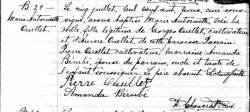 B 29
Marie Antoinette
Ouellet.
Le cinq juillet, mil neuf cent onze, nous, curé sous-
signé, avons baptisé Marie Antoinette, née la
veille, fille légitime de Georges Ouellet, cultivateur
et de Ouellet, de cette paroisse. Parrain
Pierre Ouellet, cultivateur, marraine Amanda
Bérubé, épouse du parrain, oncle et tante de
l'enfant soussignés. Le père absent.
Pierre Ouellet
Amanda Bérubé